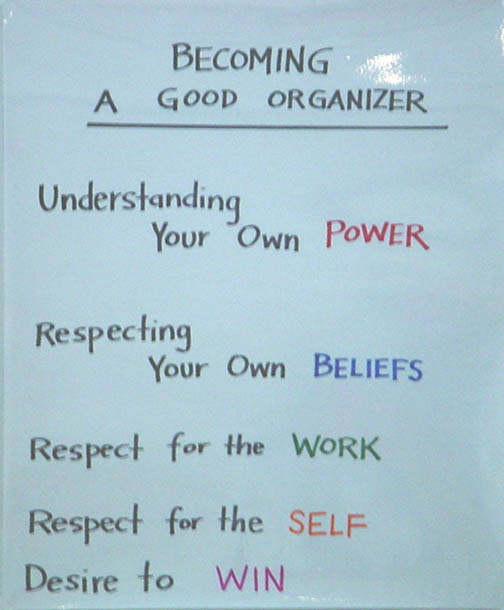 BECOMING
A GOOD ORGANIZER
Understanding
Your Own POWER
Respecting
Your Own BELIEFS
Respect for the WORK
Respect for the SELF
Desire to WIN